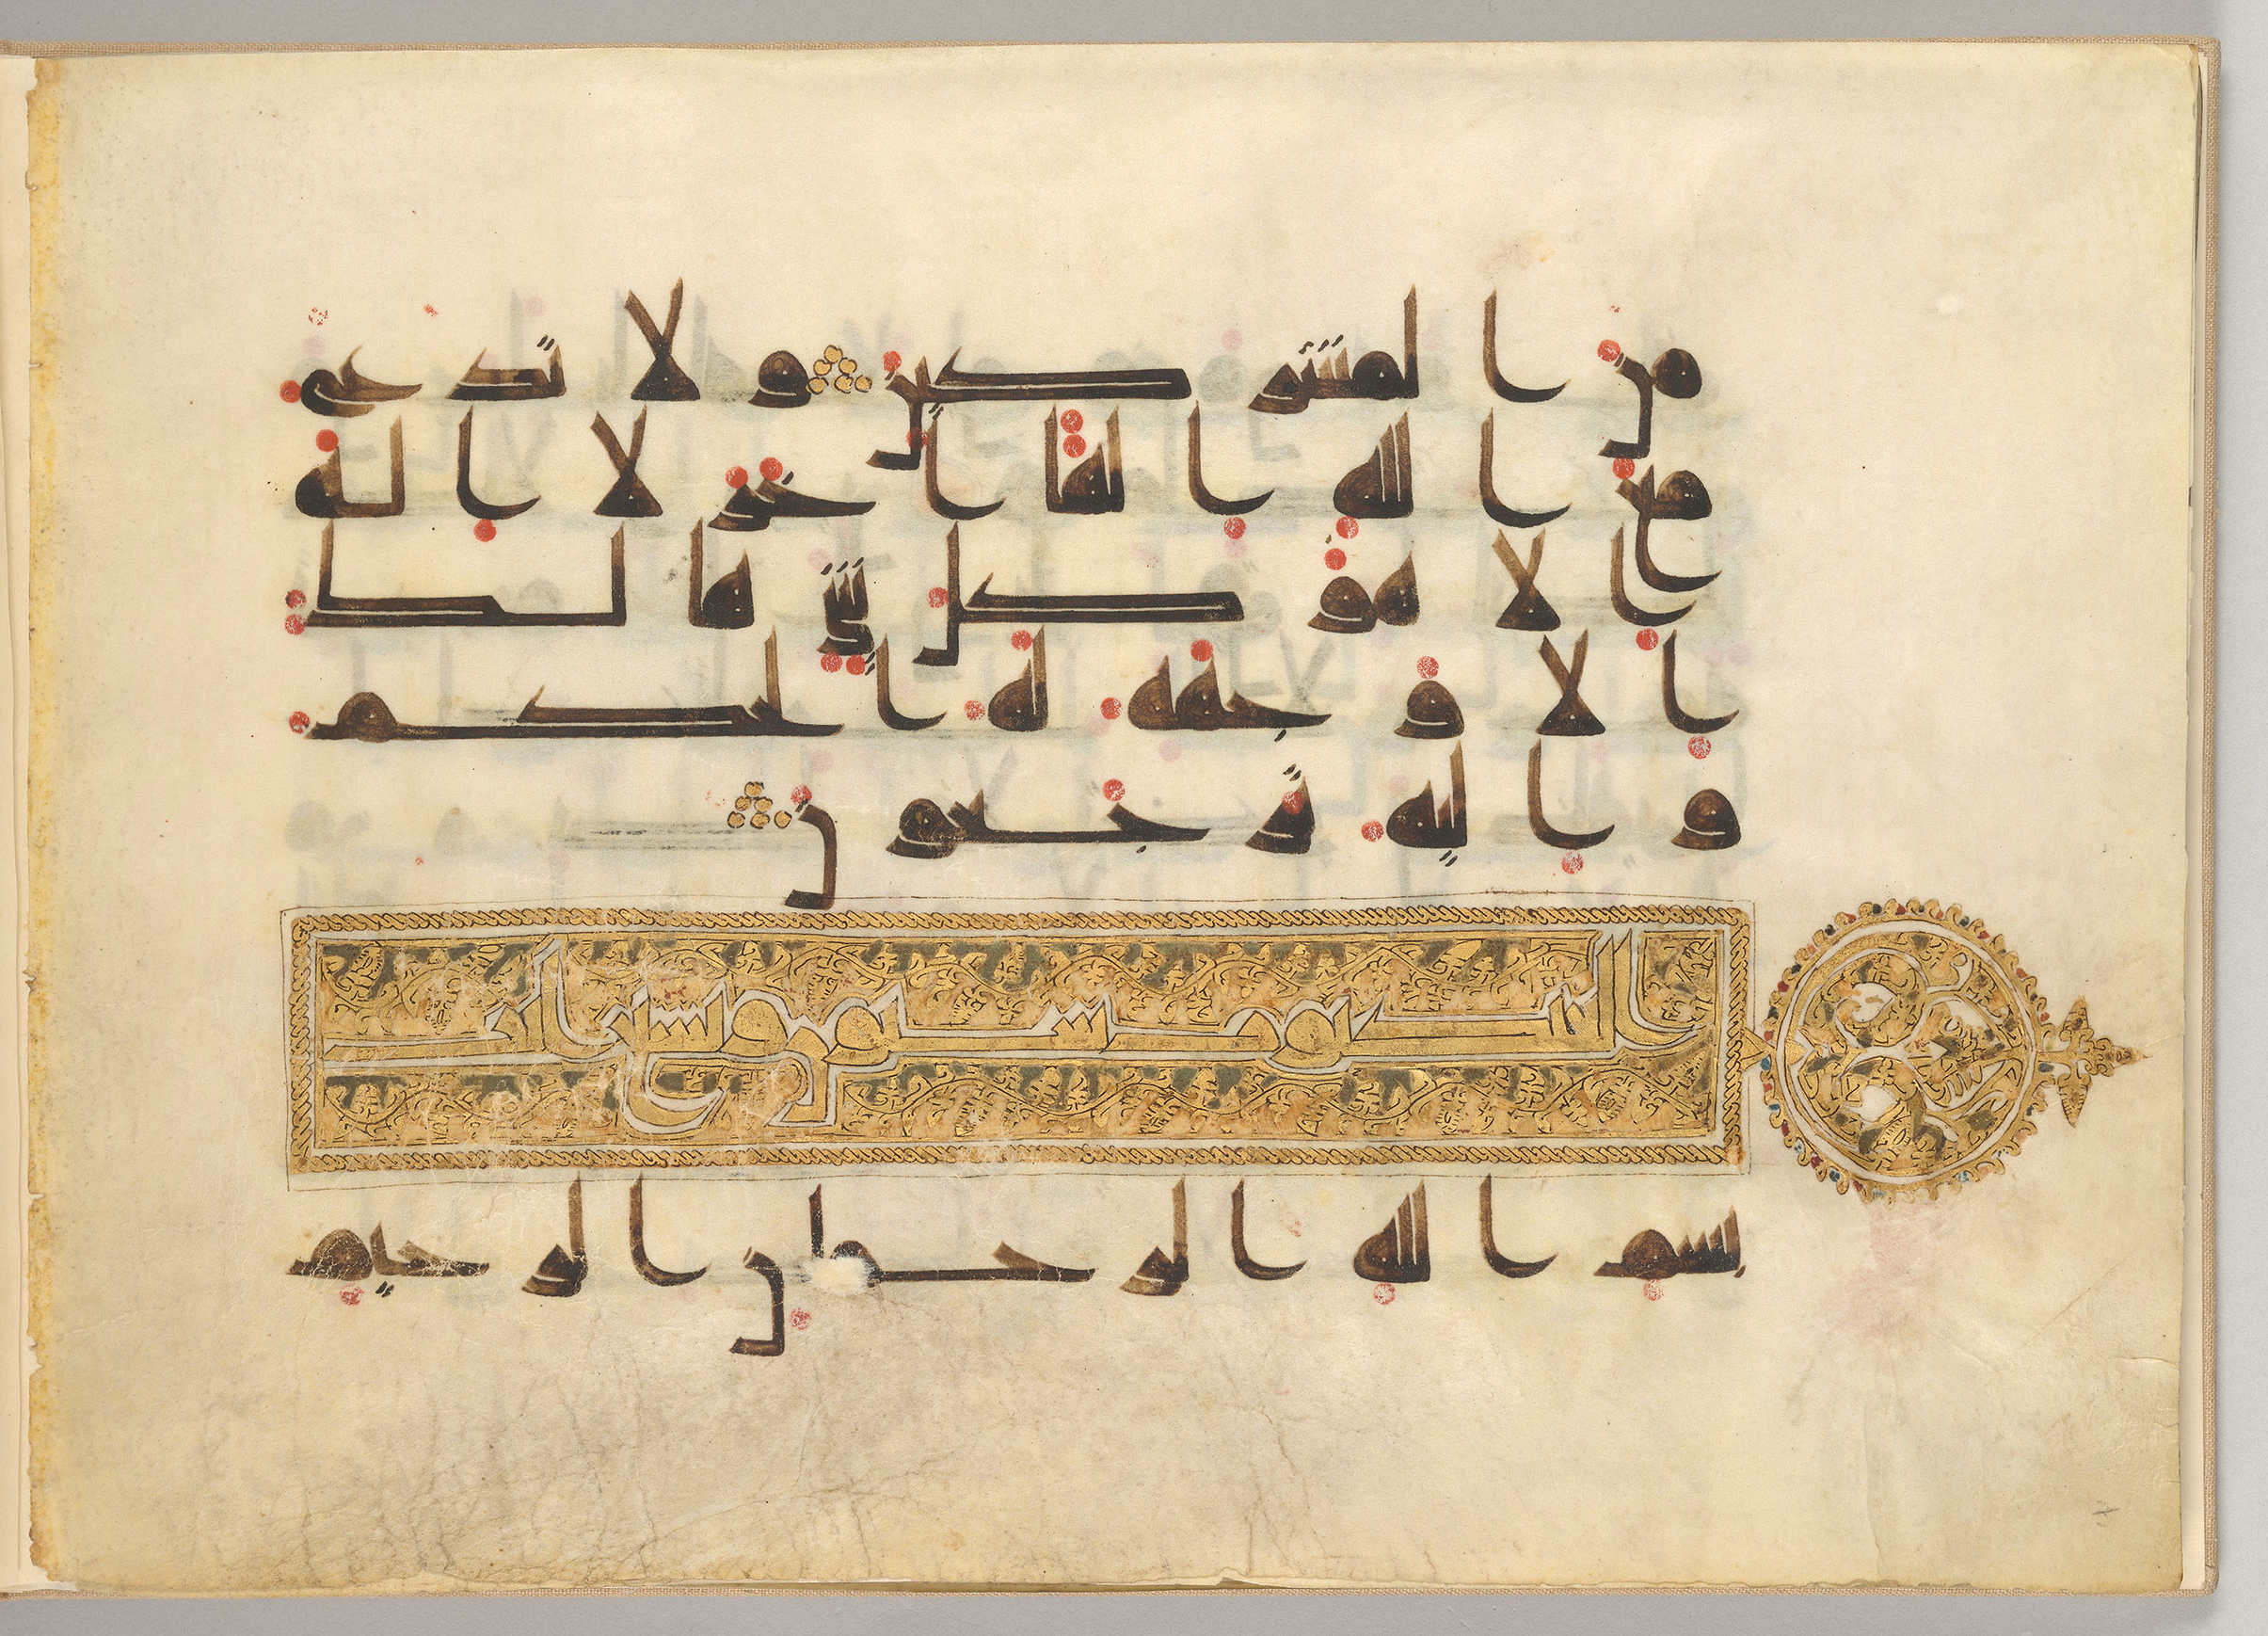 من المشركين ولا تدع
مع الله الها اخر لا اله
الا هو كل شي هلك
الا وجهه له الحكم
واليه ترجعون
العنكبوت ستون وتسع ايات
بسم الله الرحمن الرحيم